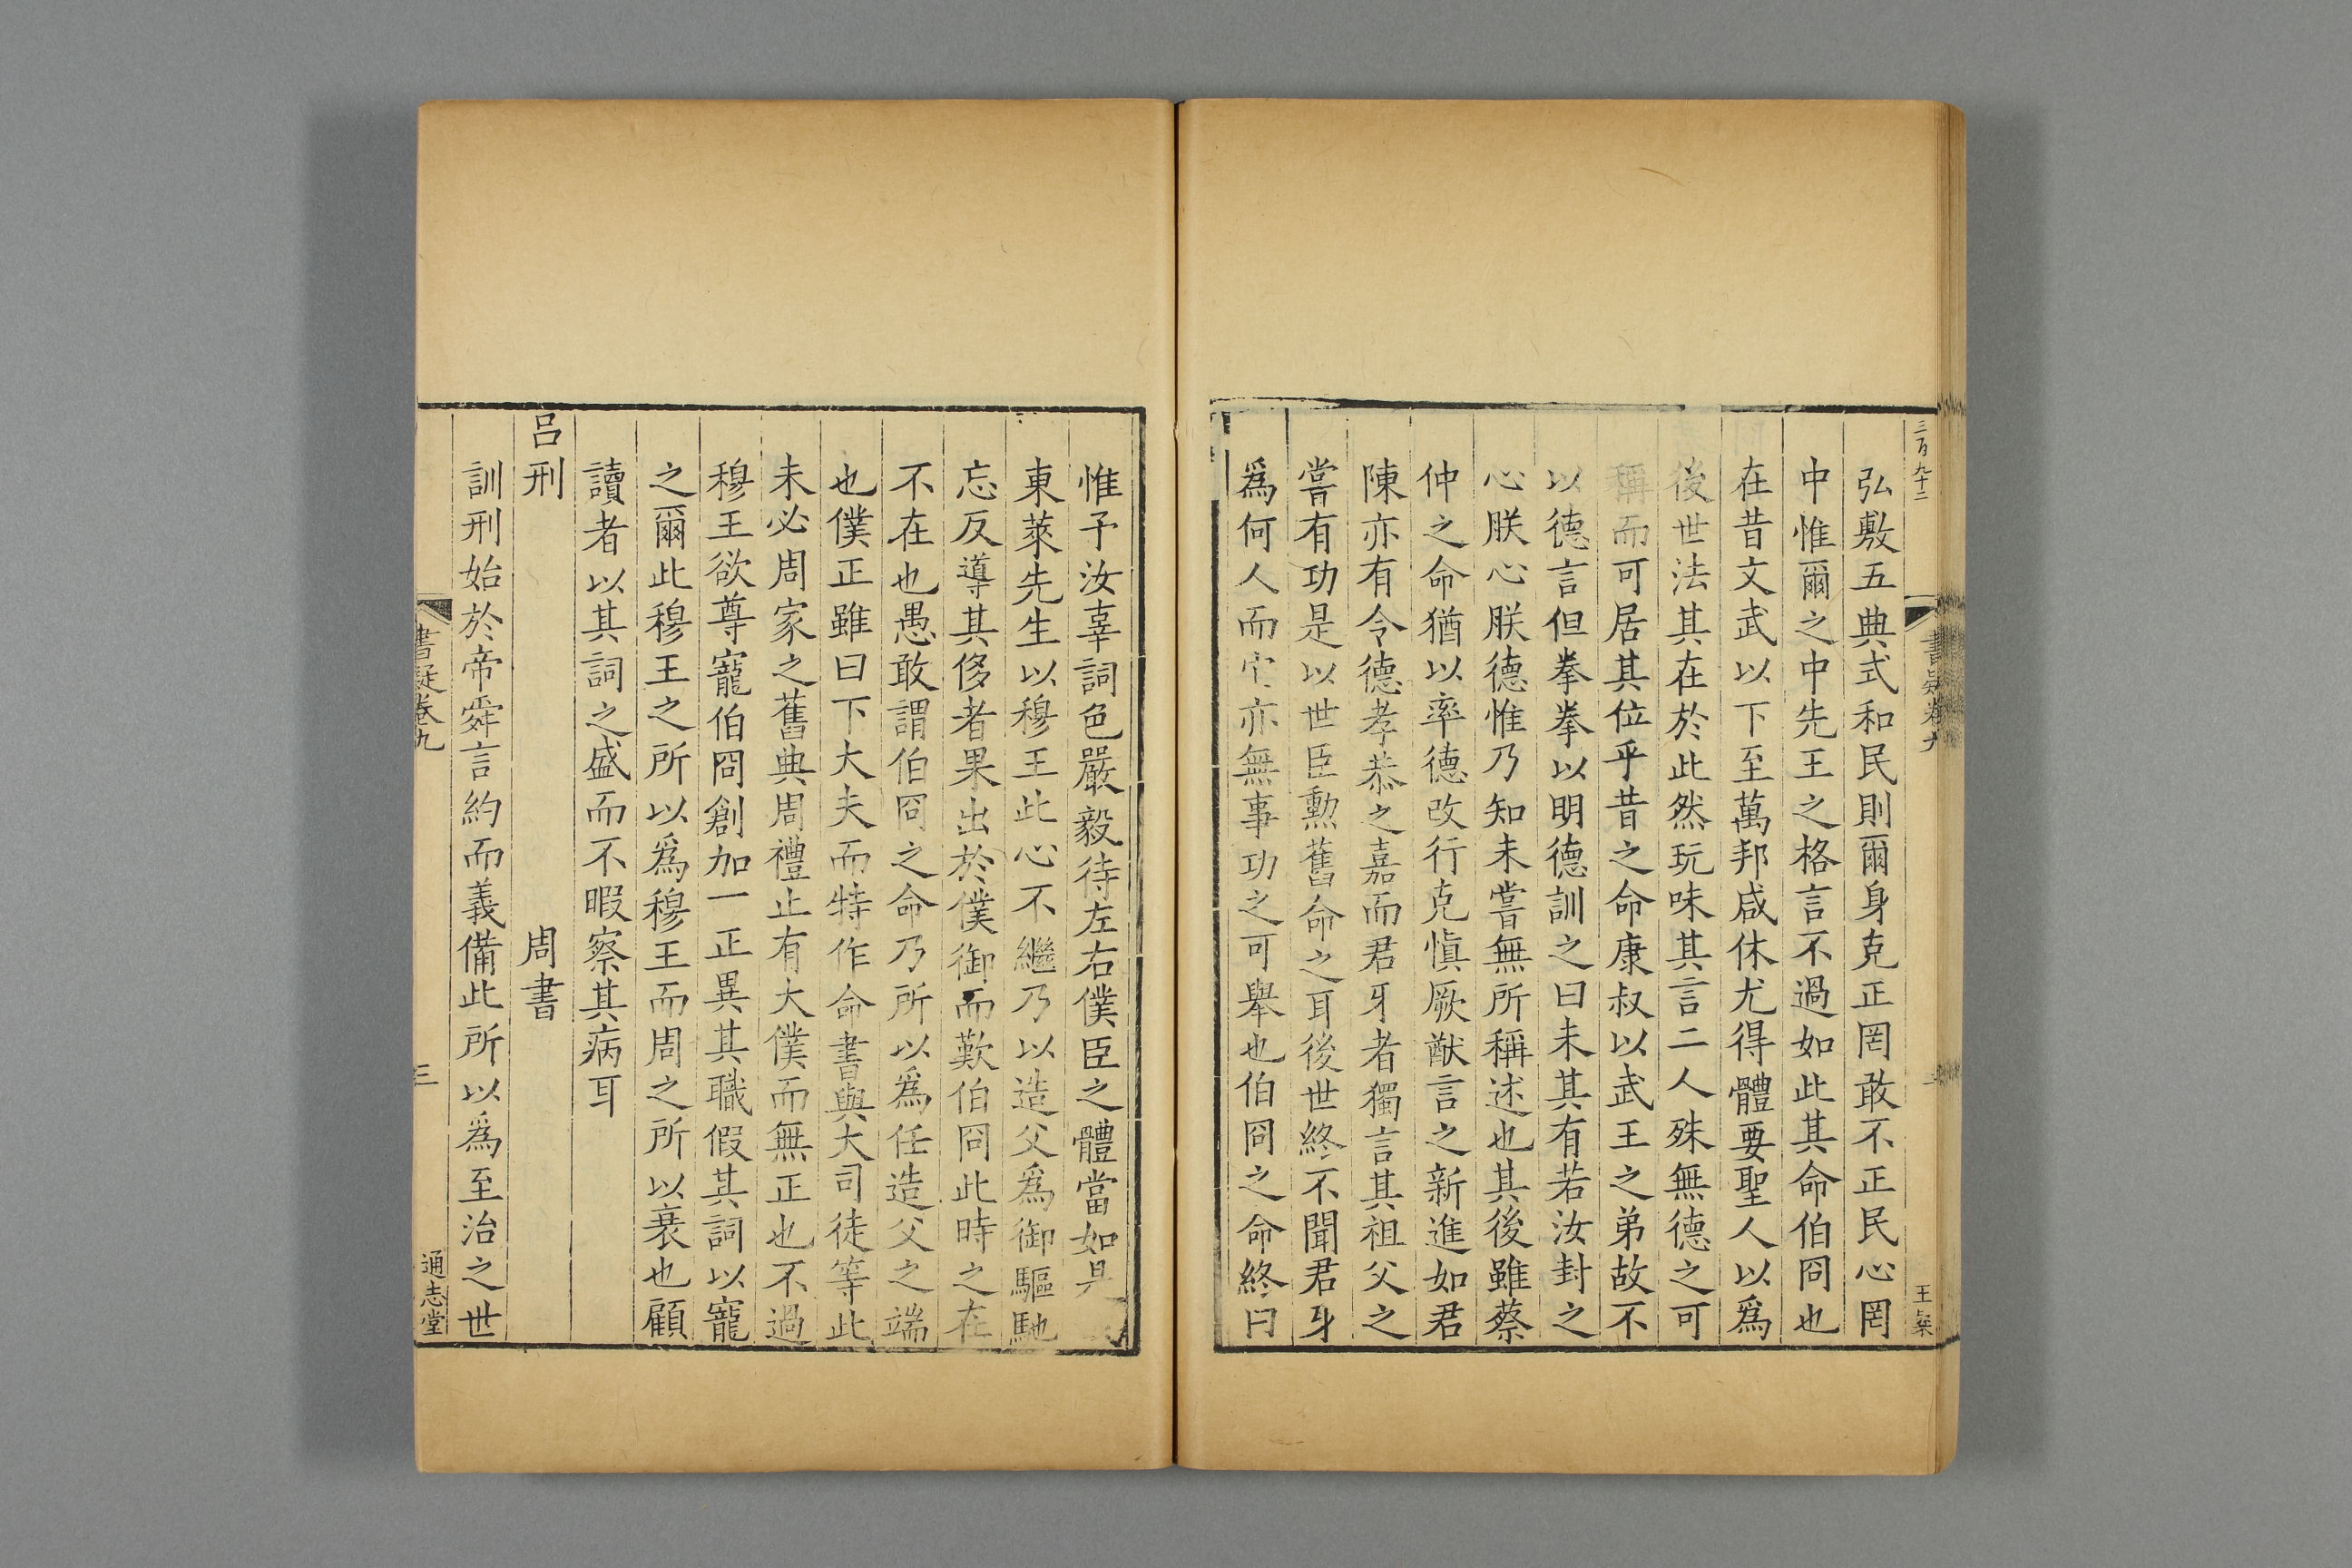 三百九十二
書疑卷九
王桒
弘敷五典式和民則爾身克正罔敢不正民心罔
中惟爾之中先王之格言不過如此其命伯冏也
在昔文武以下至萬邦咸休尤得體要聖人以爲
後世法其在於此然玩味其言二人殊無德之可
稱而可居其位乎昔之命康叔以武王之弟故不
以德言但拳拳以明德訓之曰未其有若汝封之
心朕心朕德惟乃知未嘗無所稱述也其後雖蔡
仲之命猶以率德改行克愼厥猷言之新進如君
陳亦有令德孝恭之嘉而君牙者獨言其祖父之
嘗有功是以世臣勲舊命之耳後世終不聞君牙
爲何人而亦無事功之可舉也伯冏之命終曰
惟予汝辜詞色嚴毅待左右僕臣之體當如是
東萊先生以穆王此心不繼乃以造父爲御驅馳
忘反導其侈者果出於僕御而歎伯冏此時之在
不在也愚敢謂伯冏之命乃所以爲任造父之端
也僕正雖曰下大夫而特作命書與大司徒等此
未必周家之舊典周禮止有大僕而無正也不過
穆王欲尊寵伯冏創加一正異其職假其詞以寵
之爾此穆王之所以爲穆王而周之所以衰也顧
讀者以其詞之盛而不暇察其病耳
呂刑 周書
訓刑始於帝舜言約而義備此所以爲至治之世
書疑卷九
三
通志堂